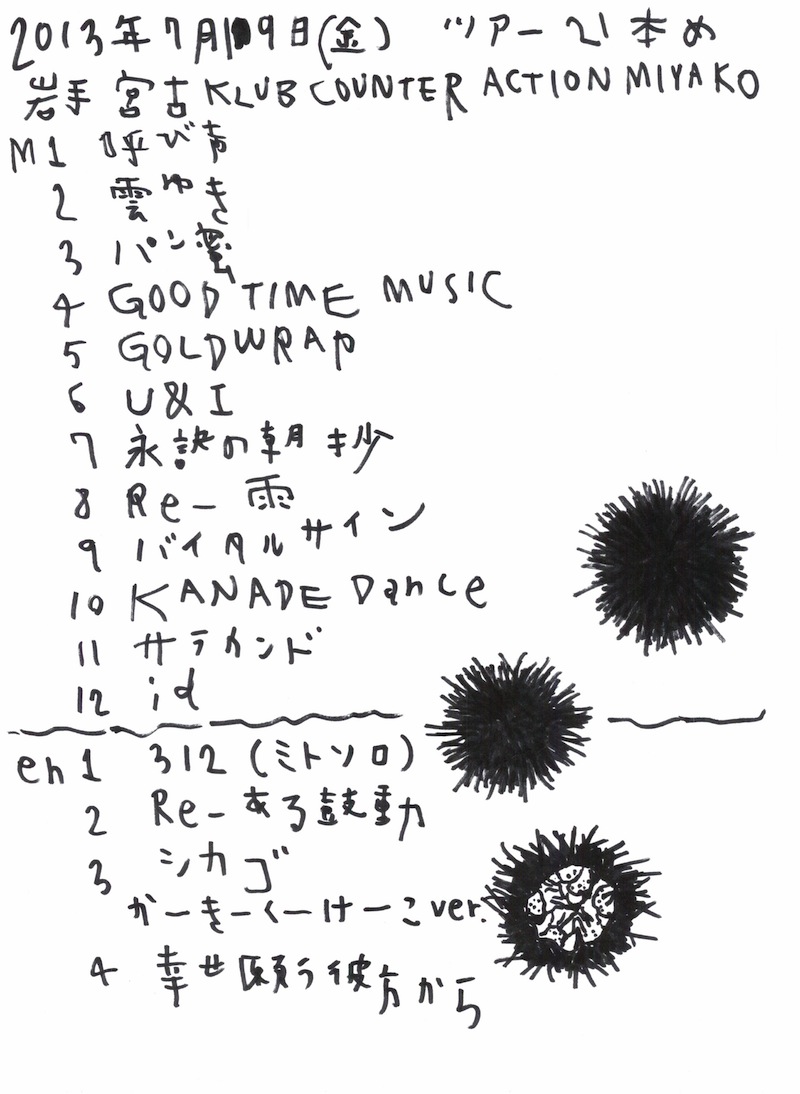 2013年7月19日(金) ツアー21本め
岩手 宮古 KLUB COUNTER ACTION MIYAKO
M1 呼び声
2 雲ゆき
3 パン窯
4 GOOD TIME MUSIC
5 GOLD WRAP
6 U&I
7 永訣の朝 抄
8 Re-雨
9 バイタルサイン
10 KANADE Dance
11 サラカンド
12 id
en1 312 (ミトソロ)
2 Re-ある鼓動
3 シカゴ
がーきーくーけーこver.
4 幸せ願う彼方から